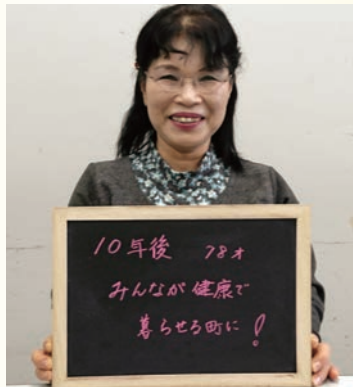 10年後 78才
みんなが健康で
暮らせる町に!